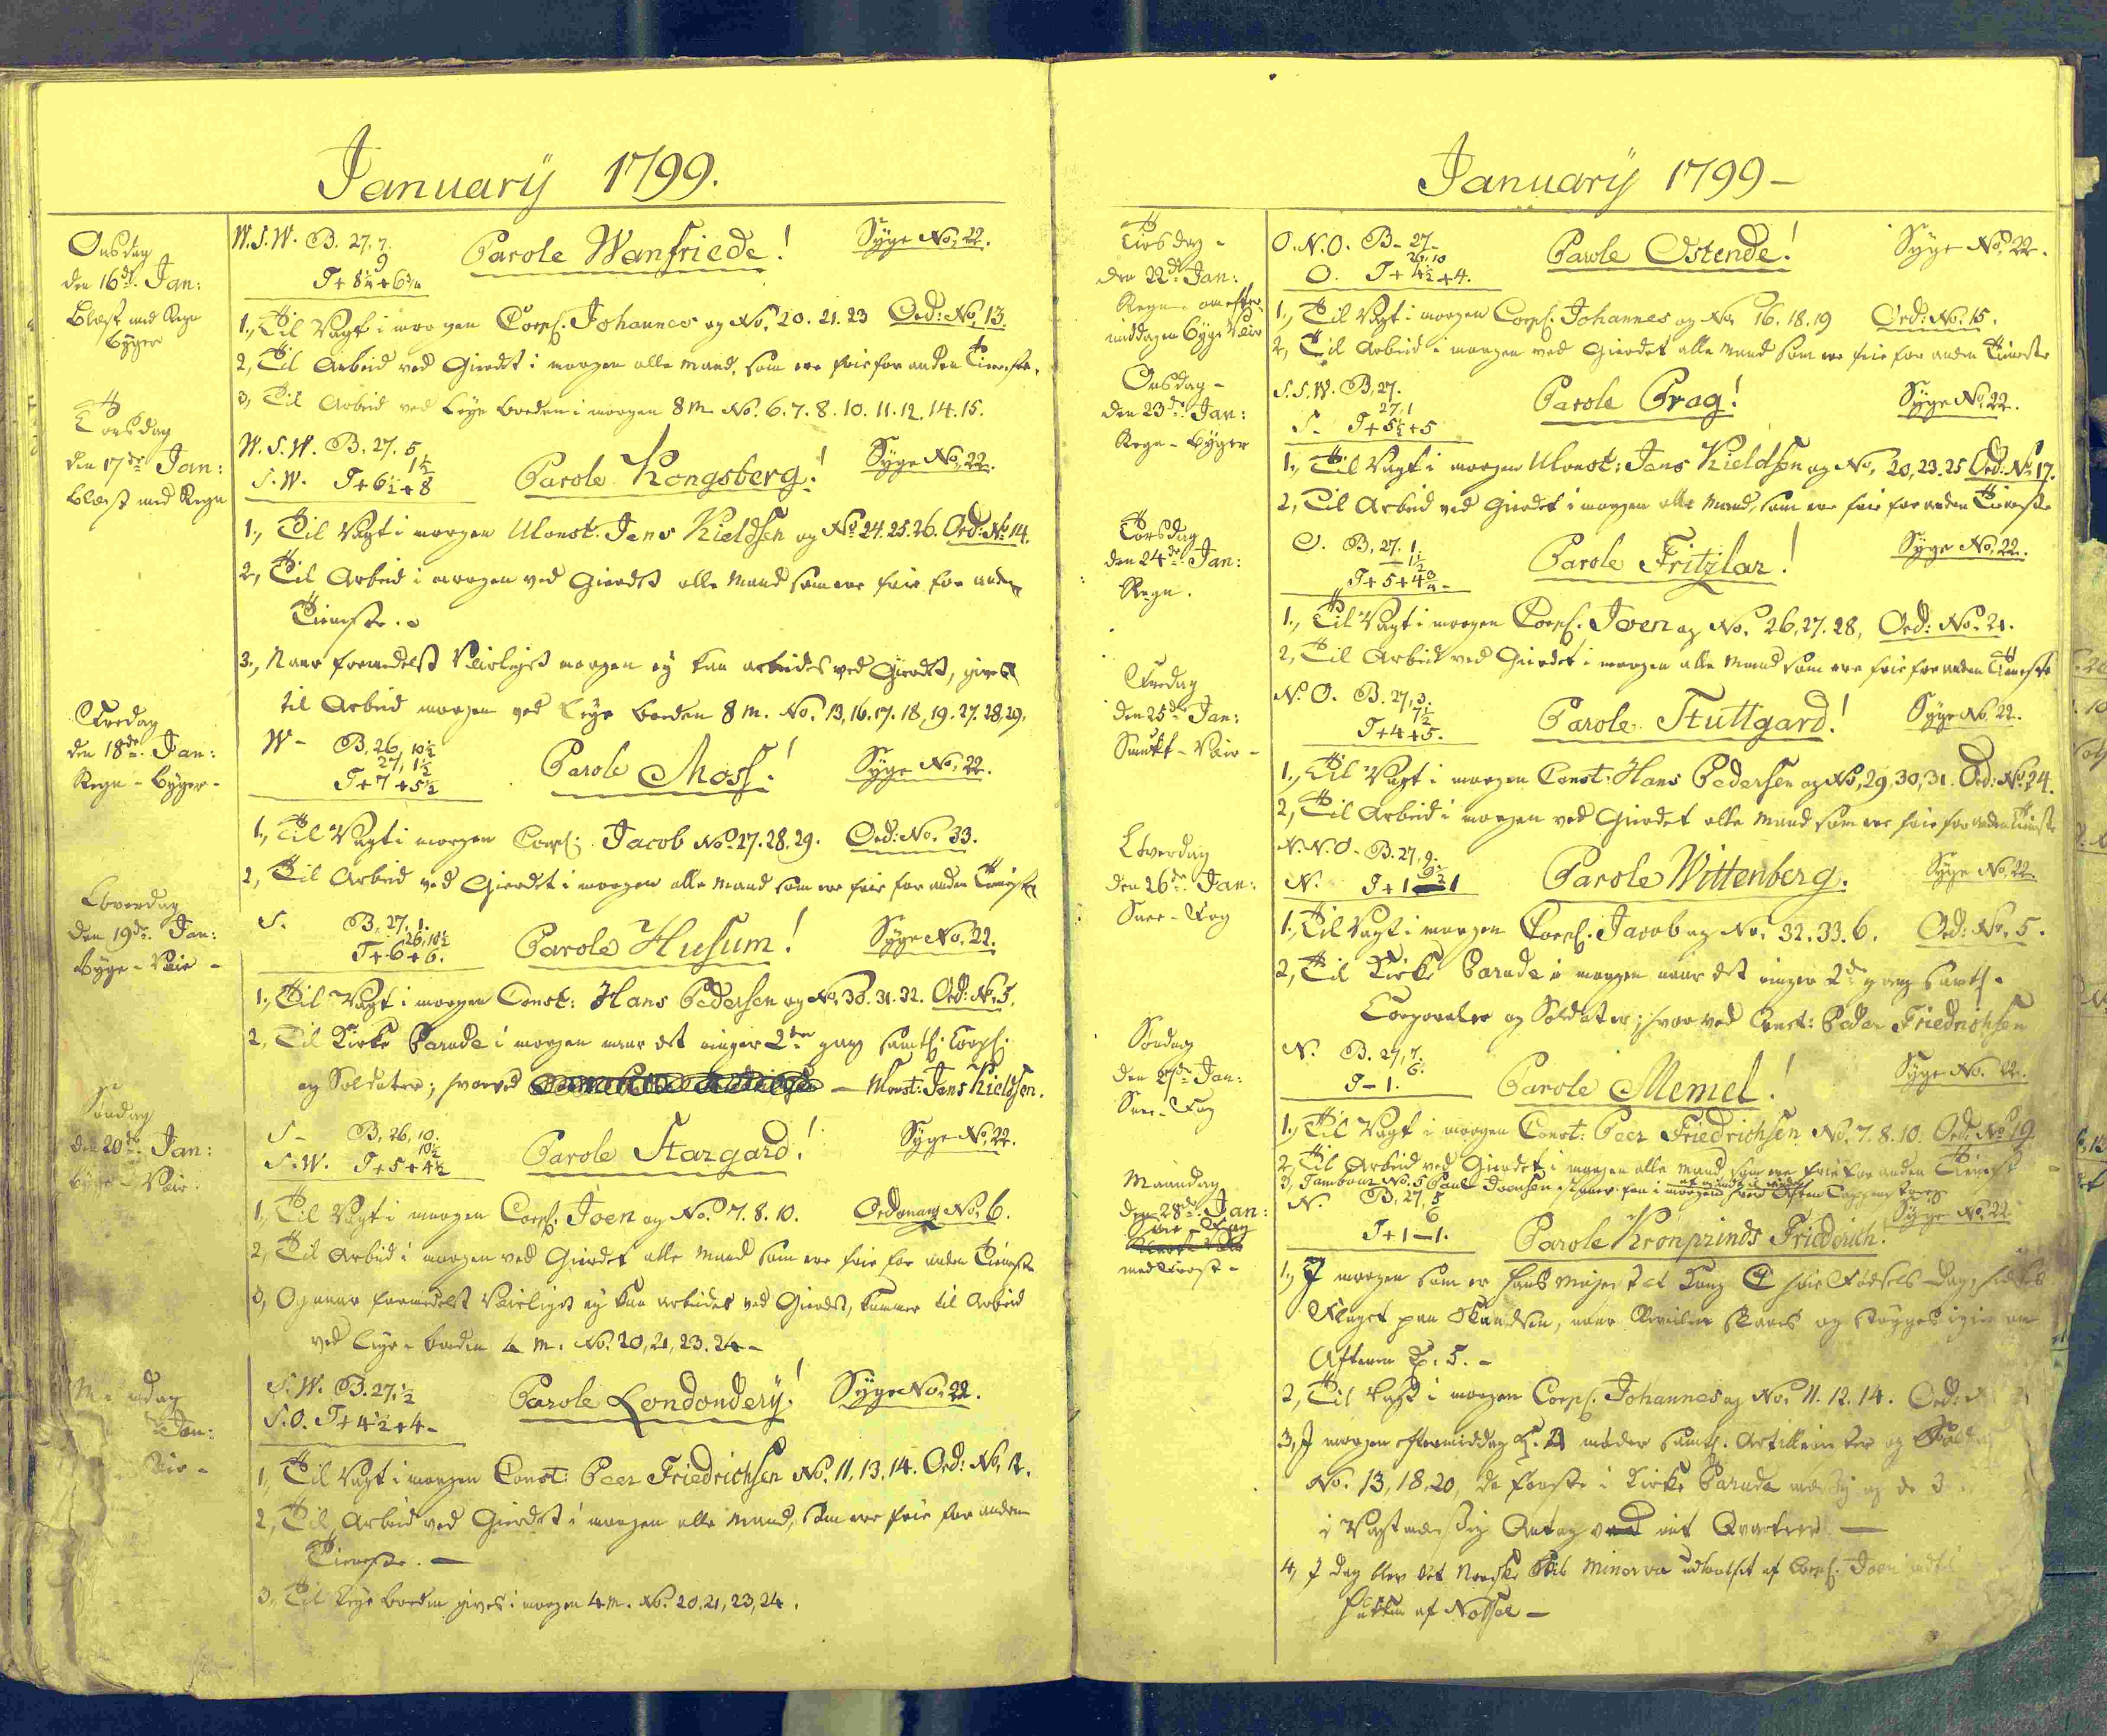 January 1799.
Onsdag
den 16de Jan:
Blæst med Regn
Byger
W.S.W. B. 27, 7.
9
T+ 8½+6¾
Parole Wanfriede!
Syge No. 22.
1, Til Vagt i morgen Corpl. Johannes og No. 20. 21. 23 Ord: No. 13.
2, Til Arbeid ved Gierdet i morgen alle Mand, som ere frie for anden Tieneste.
3, Til Arbeid ved Leye Boeden i morgen 8 m. No. 6. 7. 8. 10. 11. 12. 14. 15.
Torsdag
den 17de Jan:
Blæst med Regn
W.S.W. B. 27. 5
1½
S.W. T+6½+8
Parole Kongsberg!
Syge No. 22.
1, Til Vagt i morgen Ulonst. Jens Kieldsen og No. 24. 25. 26. Ord: No. 14.
2, Til Arbeid i morgen ved Gierdet alle Mand som ere frie for anden
Tieneste.
3, Naar formedelst Veirliget morgen ey kan arbeides ved Gierdet, gives
til Arbeid morgen ved Leye Boeden 8 m. No. 13, 16. 17. 18, 19. 27. 28, 29.
Fredag
den 18de Jan:
Regn - Byger -
W - B, 26, 10½
27, 1½
T+7+5½
Parole Moss!
Syge No. 22.
1, Til Vagt i morgen Corpl: Jacob No. 27. 28. 29. Ord: No. 33.
2, Til Arbeid ved Gierdet i morgen alle Mand som ere frie for anden Tieneste
Löverdag
den 19de Jan:
Byge - Veir -
S. B, 27, 1.
26, 10½
T+6+6.
Parole Husum!
Syge No. 22.
1, Til Vagt i morgen Const: Hans Pedersen og No. 30. 31. 32. Ord: No. 5.
2, Til Kirke Parade i morgen naar det ringer 2den gang samtl: Corpl:
og Soldater; hvorved — Ulonst: Jens Kieldsen.
Söndag
den 20de Jan:
Byge - Veir.
S - B, 26, 10.
10½
S.W. T+5+4½
Parole Stargard!
Syge No. 22.
1, Til Vagt i morgen Corpl. Joen og No. 7. 8. 10. Ordonang No. 6.
2, Til Arbeid i morgen ved Gierdet alle Mand som ere frie for anden Tieneste
3, Og naar formedelst Veirliget ey kan arbeides ved Gierdet, kommer til Arbeid
ved Leye Boeden 4 m. No. 20, 21, 23. 24 -
Jan:
Veir -
S.W. B. 27. ½
S.O. T+4½+4 -
Parole Londondery!
Syge No. 22.
1, Til Vagt i morgen Const: Peer Friedrichsen No. 11, 13. 14. Ord: No. 12.
2, Til Arbeid ved Gierdet i morgen alle Mand, som ere frie for anden
Tieneste. —
3, Til Leye Boeden gives i morgen 4 m. No. 20, 21, 23, 24.
January 1799 -
Tirsdag -
den 22de Jan:
Regn - om efter
middagen Byge Veir
O.N.O. B - 27 -
26, 10
O. T+ 4½+4.
Parole Ostende!
Syge No. 22.
1, Til Vagt i morgen Corpl: Johannes og No. 16. 18. 19 Ord: No. 15.
2, Til Arbeid i morgen ved Gierdet alle Mand som ere frie for anden Tieneste
Onsdag -
den 23de Jan:
Regn - Byger
S.S.W. B, 27.
27, 1
S. T+5½+5
Parole Prag!
Syge No. 22.
1, Til Vagt i morgen Ulonst: Jens Kieldsen og No. 20, 23. 25 Ord: No. 17.
2, Til Arbeid ved Gierdet i morgen alle Mand, som ere frie for anden Tieneste
Torsdag
den 24de Jan:
Regn.
O. B, 27. 1
1½
T+5+4¾ -
Parole Fritzlar!
Syge No. 22.
1, Til Vagt i morgen Corpl. Joen og No. 26, 27. 28, Ord: No. 21.
2, Til Arbeid ved Gierdet i morgen alle Mand som ere frie for anden Tieneste
Fredag
den 25de Jan:
Smukt - Veir -
N.O. B. 27, 3.
7½
T+4+5.
Parole Stuttgard!
Syge No. 22.
1, Til Vagt i morgen Const: Hans Pedersen og No. 29, 30, 31. Ord: No. 24.
2, Til Arbeid i morgen ved Gierdet alle Mand som ere frie for anden Tieneste
Löverdag
den 26de Jan:
Snee - Fog
N.N.O - B. 27, 9.
9½
N. T+1 - 1
Parole Wittenberg.
Syge No. 22.
1, Til Vagt i morgen Corpl. Jacob og No. 32. 33. 6. Ord: No. 5.
2, Til Kirke Parade i morgen naar det ringer 2de gang samtl.
Corporaler og Soldater; hvorved Const: Peder Friedrichsen
Söndag
den 27de Jan:
Snee - Fog
N. B. 27, 7.
6.
T - 1.
Parole Memel!
Syge No. 22.
1, Til Vagt i morgen Const: Peer Friedrichsen No. 7. 8. 10. Ord: No. 19
2, Til Arbeid ved Gierdet i morgen alle Mand som ere frie for anden Tieneste
3, Tambour No. 5 Paul Joensen i morgen ved Aften Tappenstreg
Maandag
den 28de Jan:
Snee - Fog
med Frost -
N. B, 27, 5
6
T+1-1.
Parole Kronprinds Friederich!
Syge No. 22
1, I morgen som er Hans Majestet Kong C höie Födsels-Dag, heises
Flaget paa Skandsen, naar Reveilen slaaes og stryges igien om
Aftenen Kl. 5. -
2, Til Vagt i morgen Corpl. Johannes og No. 11. 12. 14. Ord:
3, I morgen eftermiddag Kl. 2 möder samtl. Artillerister og Soldat
No. 13, 18, 20, de förste i Kirke Parade mæssig og de 3
i Vagtmæssig Antog ved mit Qvarteer —
4, I dag blev det Norske Skib Minerva udhalset af Corpl. Joen
Hukken af Nolsöe —